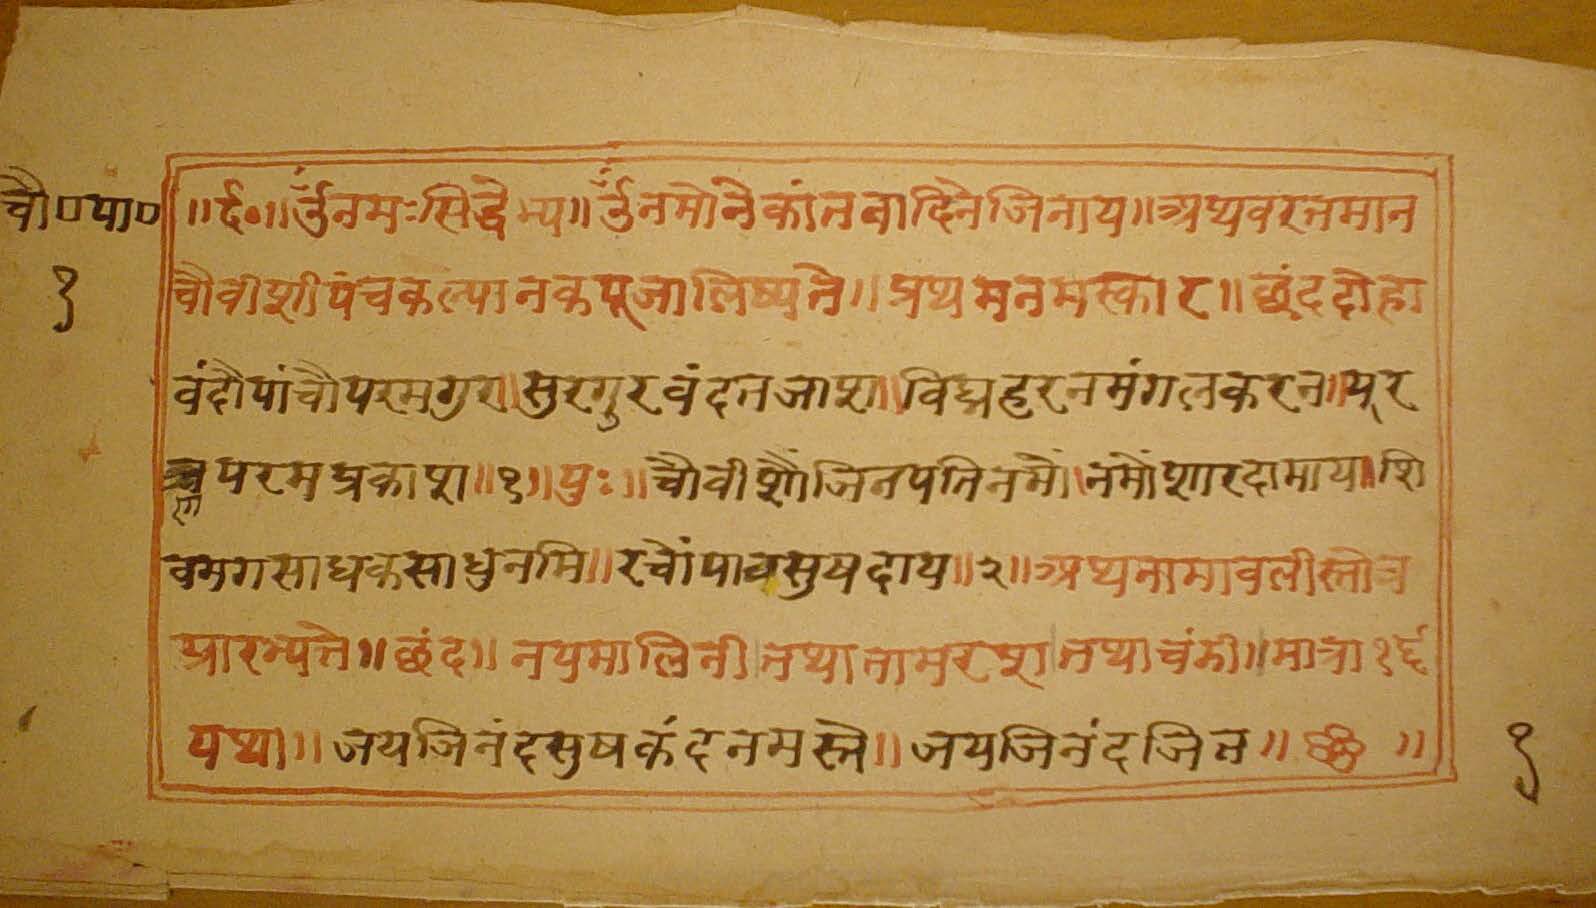 चौ०पा०
१
॥र्द०॥ र्उँनमःसिद्धैभ्य॥ र्उँनमोनैकांतवादिनैजिनाय॥अथवरतमान
चौवीशीपंचकल्यानकपूजालिष्यतै॥प्रथमनमस्कार॥छंददोहा
वंदौपांचौपरमगुर॥सुरगुरवंदतजाश॥विघ्नहरनमंगलकरन॥पूर
परमप्रकाश॥१॥पुः॥चौवीशौंजिनपतिनमौं॥नमौंशारदामाय॥शि
वमगसाधकसाधुनमि॥रचौंपाठसुषदाय॥२॥अथनामावलीस्तोत्र
प्रारभ्यते॥छंद॥नयमालिनी।तथातामरश।तथाचंडी॥मात्रा१६
यथा॥जयजिनंदसुषकंदनमस्ते॥जयजिनंदजित॥
१